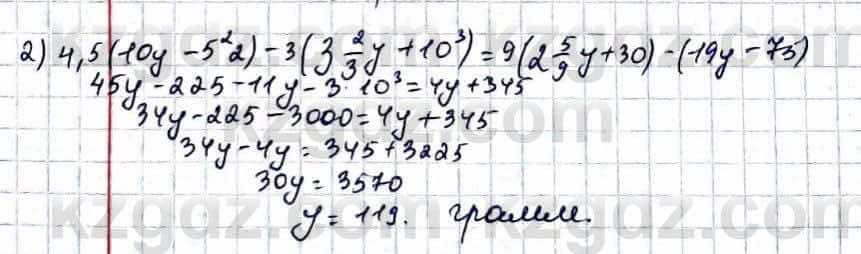 2) 4,5(10y - 5²2) - 3(3 2/3 y + 10³) = 9(2 5/9 y + 30) - (19y - 75)
45y - 225 - 11y - 3·10³ = 4y + 345
34y - 225 - 3000 = 4y + 345
34y - 4y = 345 + 3225
30y = 3570
y = 119. грамм.
kzgdz.com